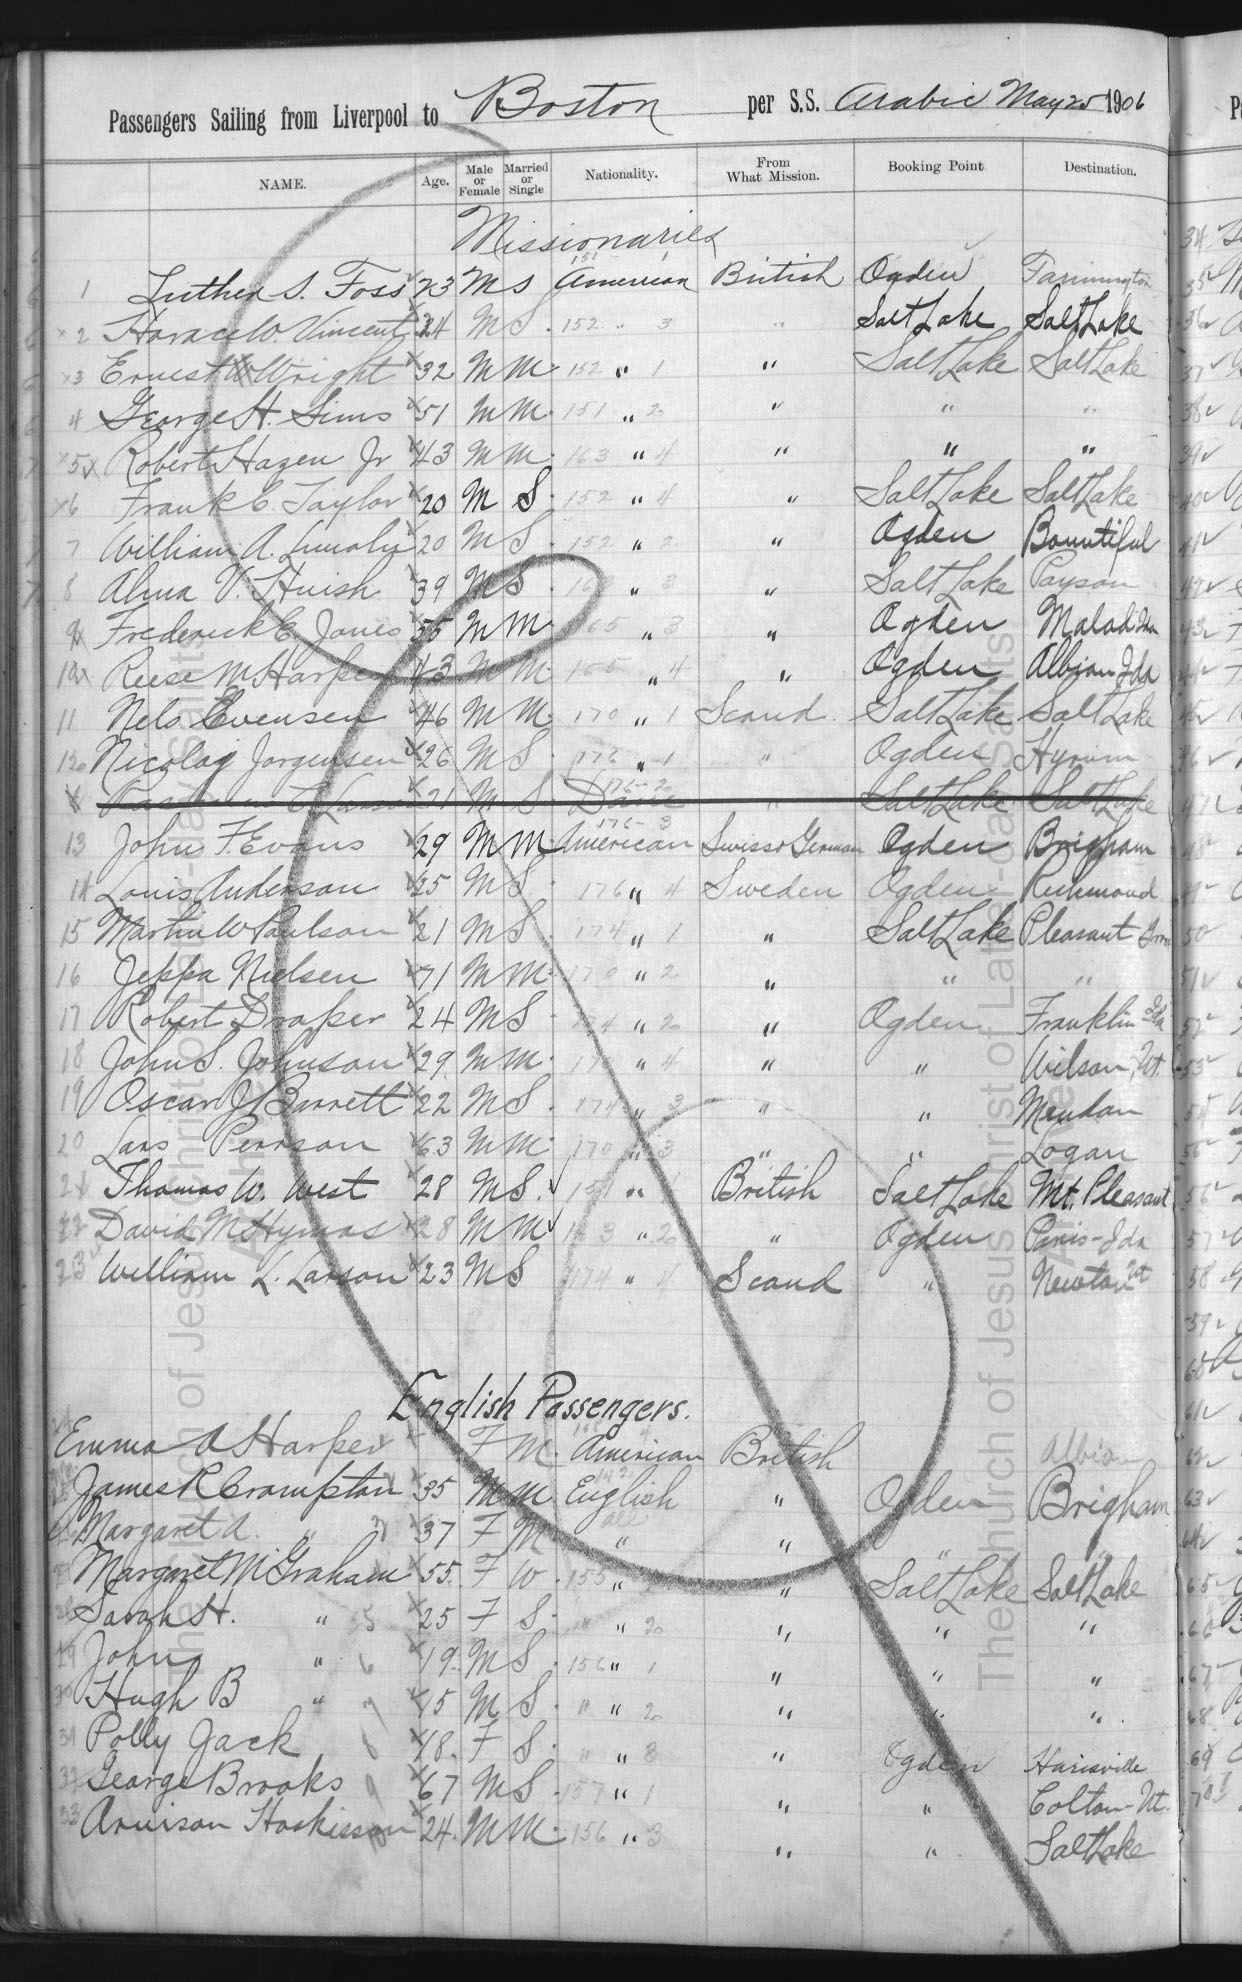 Passengers Sailing from Liverpool to Boston per S.S. Arabic May 25 1906
NAME. Age. Male or Female Married or Single Nationality. From What Mission. Booking Point. Destination.
Missionaries
1 Luther S. Foss 23 M S 151 1 American British Ogden Farmington
2 Horace W. Vincent 24 M S 152 " 3 " Salt Lake Salt Lake
3 Ernest Wright 32 M M 152 " 1 " Salt Lake Salt Lake
4 George H. Sims 51 M M 151 " 2 " " "
5 Robert Hazen Jr 43 M M 163 " 4 " " "
6 Frank E Taylor 20 M S 152 " 4 " Salt Lake Salt Lake
7 William A. 20 M S 152 " 2 " Ogden Bountiful
8 Alma V. Huish 39 M S " 3 " Salt Lake Payson
9 Frederick E. Jones 55 M M 165 " 3 " Ogden Malad Ida
10 Reese M Harper 43 M M 165 " 4 " Ogden Albion Ida
11 Nels Evensen 46 M M 170 " 1 Scand. Salt Lake Salt Lake
12 Nicolay Jorgensen 26 M S 176 " 1 " Ogden Hyrum
21 M S 176-2 Dane " Salt Lake Salt Lake
13 John F Evans 29 M M 176-3 American Swiss & German Ogden Brigham
14 Louis Anderson 25 M S 176 " 4 Sweden Ogden Richmond
15 Martin W Paulson 21 M S 174 " 1 " Salt Lake Pleasant Grove
16 Jeppa Nielsen 71 M M 170 " 2 " " "
17 Robert Draper 24 M S 174 " 2 " Ogden Franklin Ida
18 John S. Johnson 29 M M 170 " 4 " " Wilson, Ut.
19 Oscar J Barrett 22 M S 174 " 3 " " Mendon
20 Lars Pearson 63 M M 170 " 3 " " Logan
21 Thomas W. West 28 M S " British Salt Lake Mt. Pleasant
22 David M Hymas 28 M M 163 " 2 " Ogden Paris-Ida
23 William L. Larson 23 M S 174 " 4 Scand " Newton Ut
English Passengers.
24 Emma A Harper F M American British Albion
James R Crompton 35 M M English " Ogden Brigham
Margaret A. " 37 F M all " " " "
Margaret McGraham 55 F W 155 " " Salt Lake Salt Lake
28 Sarah H. " 5 25 F S " " 2 " " "
29 John " 6 19 M S 156 " 1 " " "
30 Hugh B " 7 15 M S " " 2 " " "
31 Polly Jack 8 18 F S " " 3 " Ogden Harisville
32 George Brooks 9 67 M S 157 " 1 " " Colton-Ut.
33 Hoskisson 24 M M 156 " 3 " " Salt Lake
The Church of Jesus Christ of Latter-day Saints
The Church of Jesus Christ of Latter-day Saints